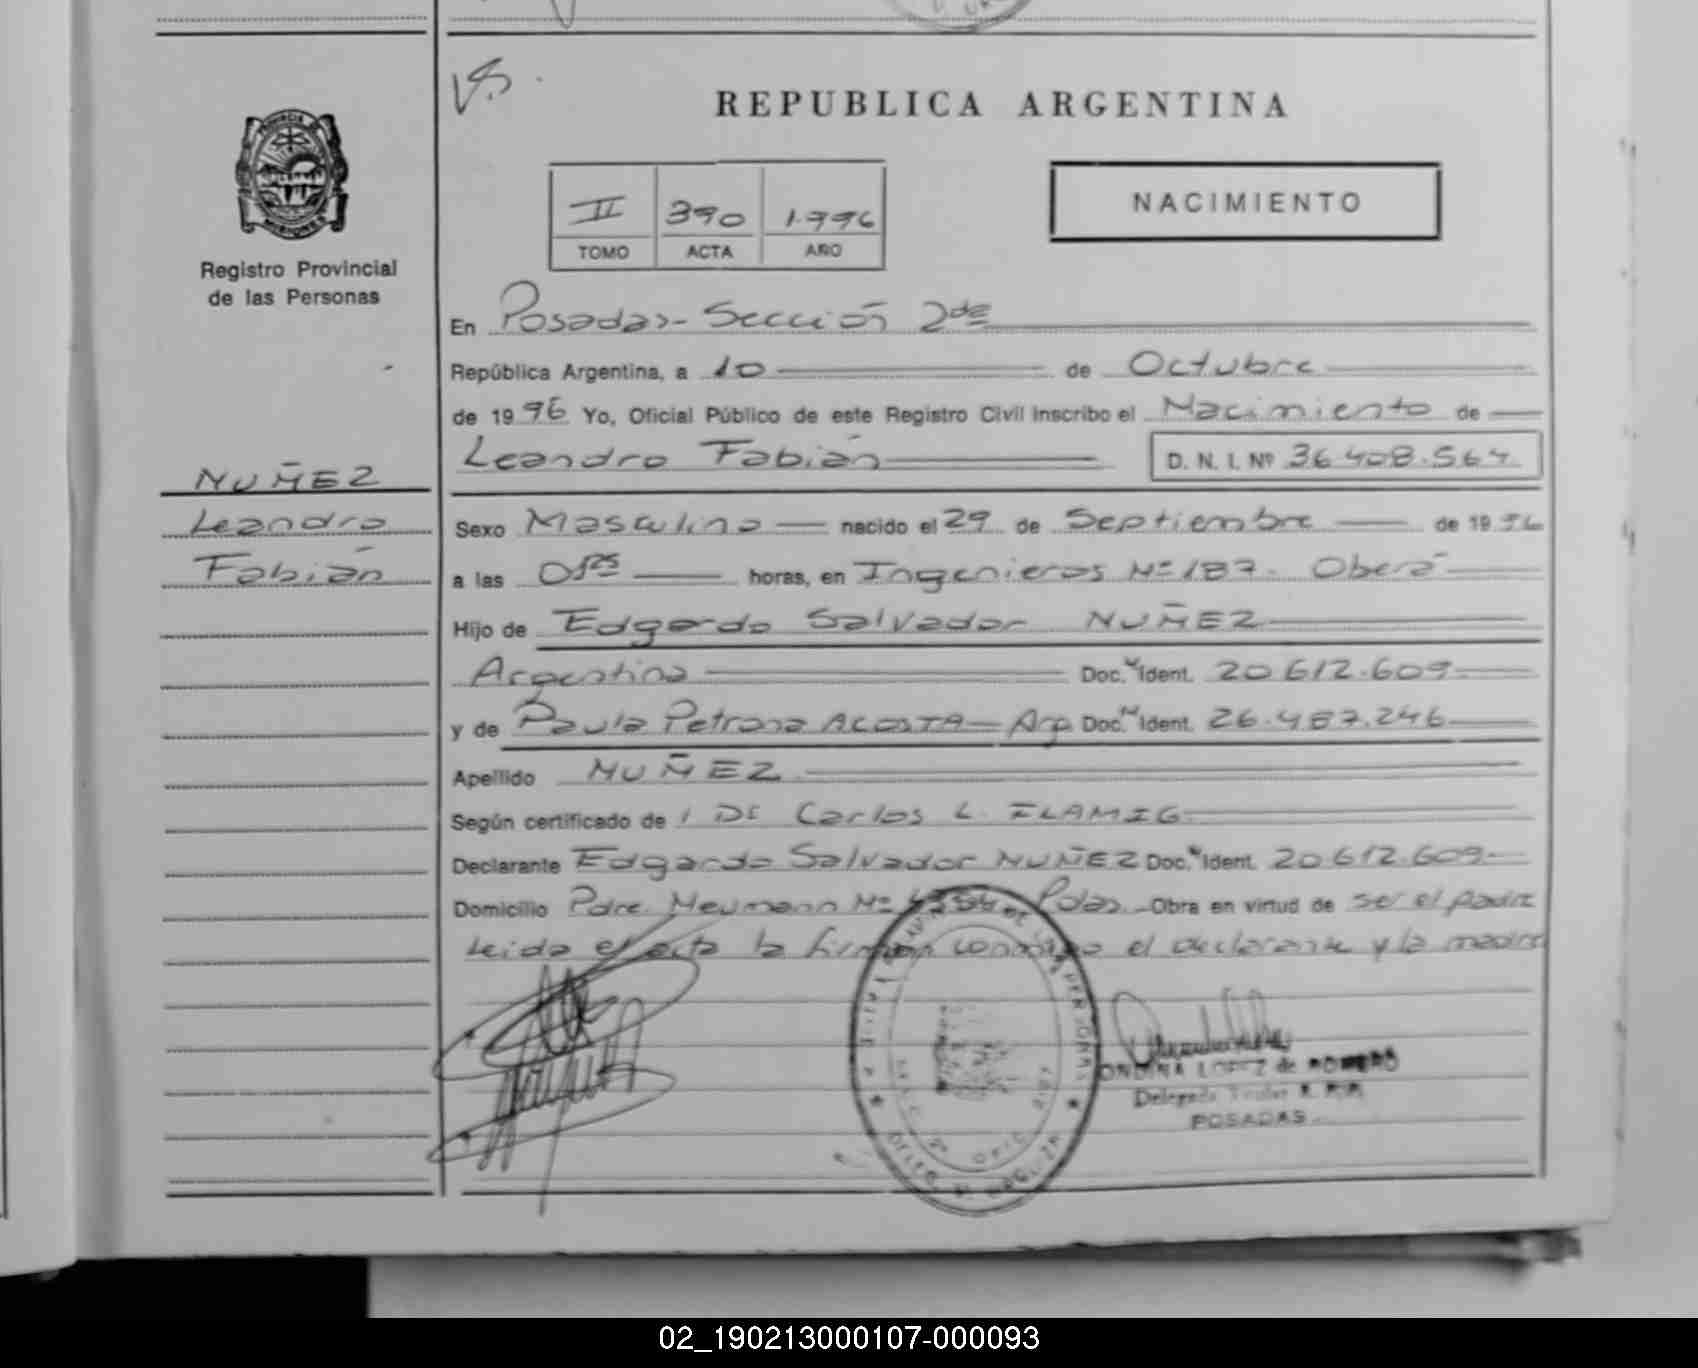 REPUBLICA ARGENTINA
NACIMIENTO
II 390 1.996
TOMO ACTA AÑO
PROVINCIA DE
MISIONES
Registro Provincial
de las Personas
NUÑEZ
Leandro
Fabián
En Posadas- Sección 2da
República Argentina, a 10 de Octubre
de 1996 Yo, Oficial Público de este Registro Civil Inscribo el Nacimiento de
Leandro Fabián D. N. I. Nº 36.408.564
Sexo Masculino nacido el 29 de Septiembre de 1996
a las horas, en Ingenieros Nº 187. Oberá
Hijo de Edgardo Salvador NUÑEZ
Argentina Doc. N Ident. 20.612.609
y de Paula Petrona ACOSTA - Arg. Doc. N Ident. 26.487.246
Apellido NUÑEZ
Según certificado de Dr Carlos L. FLAMIG
Declarante Edgardo Salvador NUÑEZ Doc. N Ident. 20.612.609
Domicilio Pdre. Neumann Nº Pdas. Obra en virtud de ser el padre
Leida el acta la firman conmigo el declarante y la madre
ONDINA LOPEZ de ROMERO
Delegada Titular R. P. P.
POSADAS
02_190213000107-000093